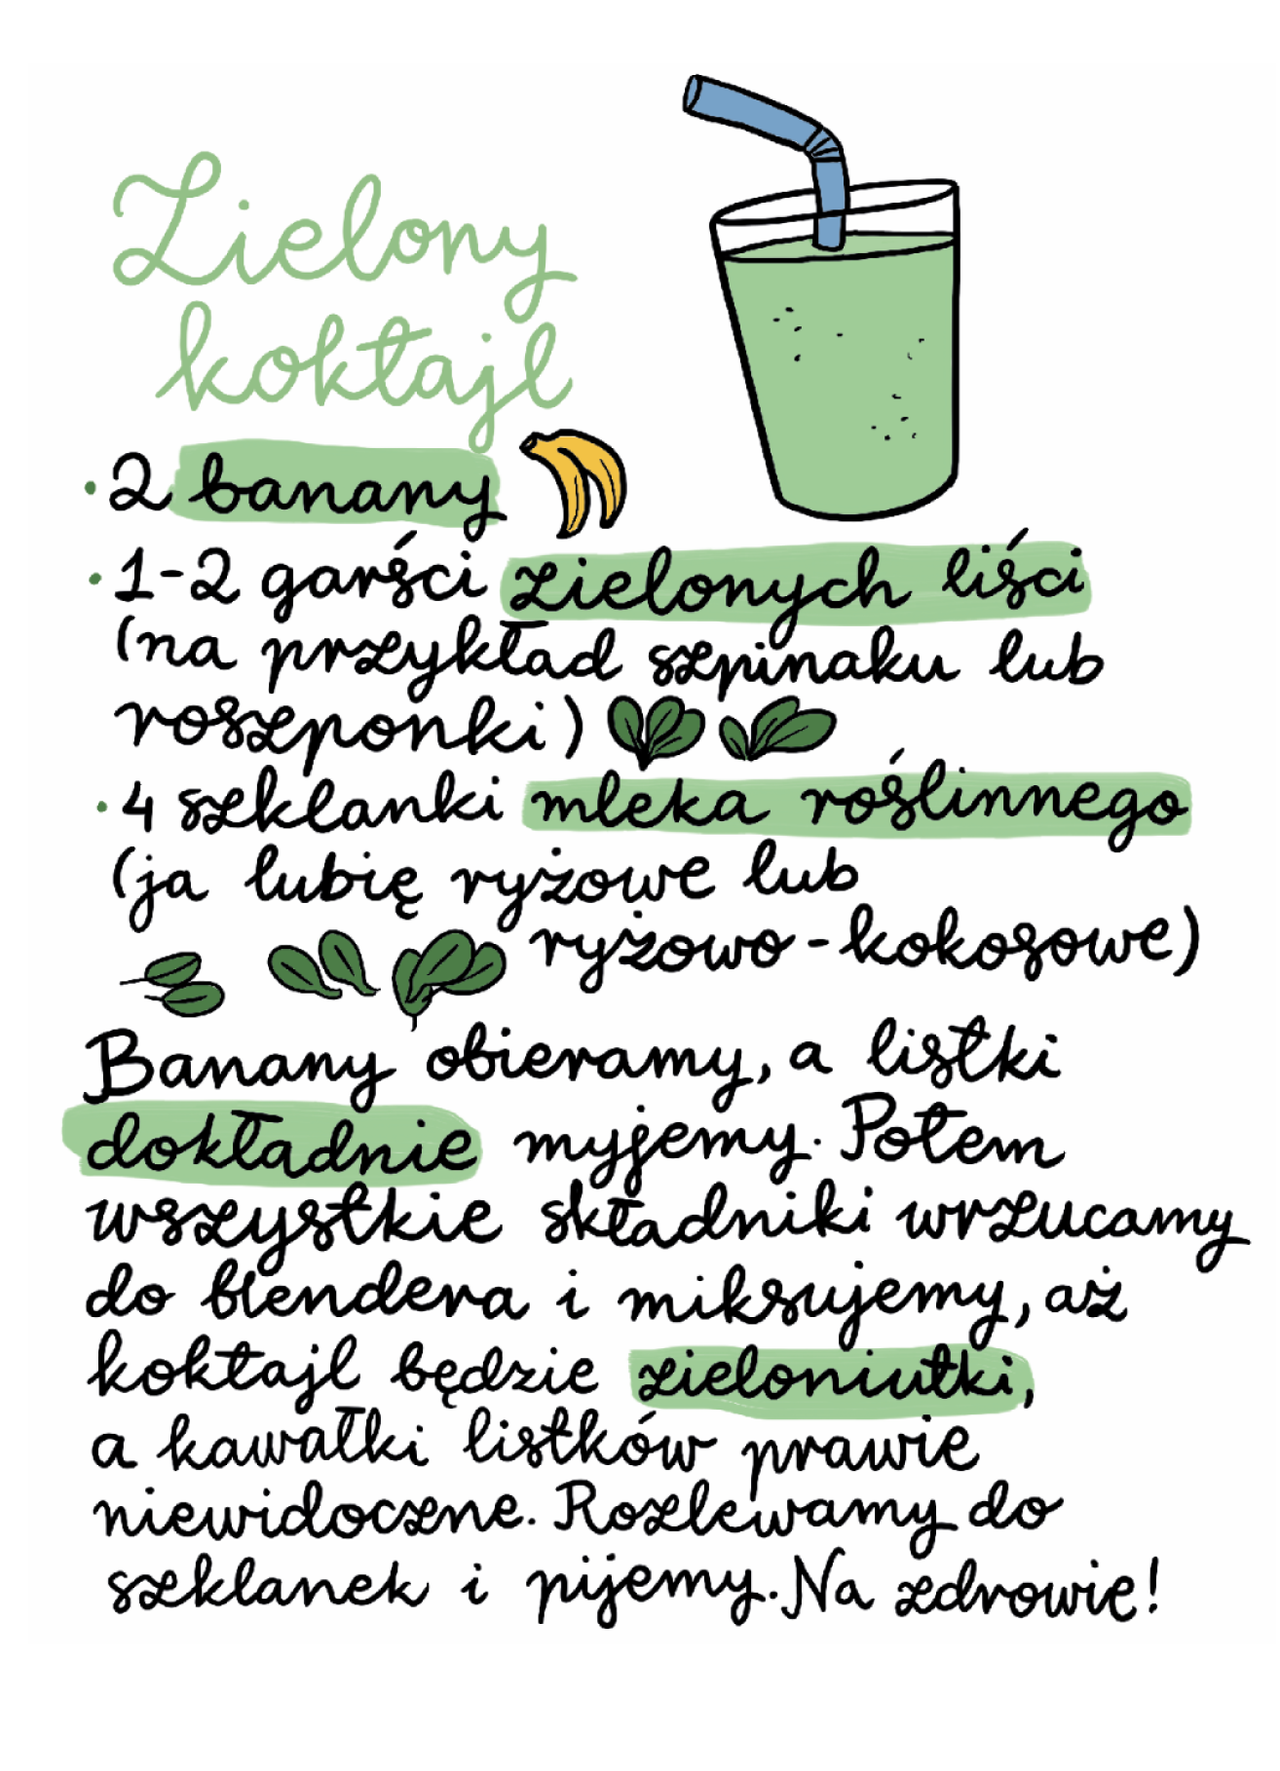 Zielony
koktajl
• 2 banany
• 1-2 garści zielonych liści
(na przykład szpinaku lub
roszponki)
• 4 szklanki mleka roślinnego
(ja lubię ryżowe lub
ryżowo-kokosowe)
Banany obieramy, a listki
dokładnie myjemy. Potem
wszystkie składniki wrzucamy
do blendera i miksujemy, aż
koktajl będzie zieloniutki,
a kawałki listków prawie
niewidoczne. Rozlewamy do
szklanek i pijemy. Na zdrowie!